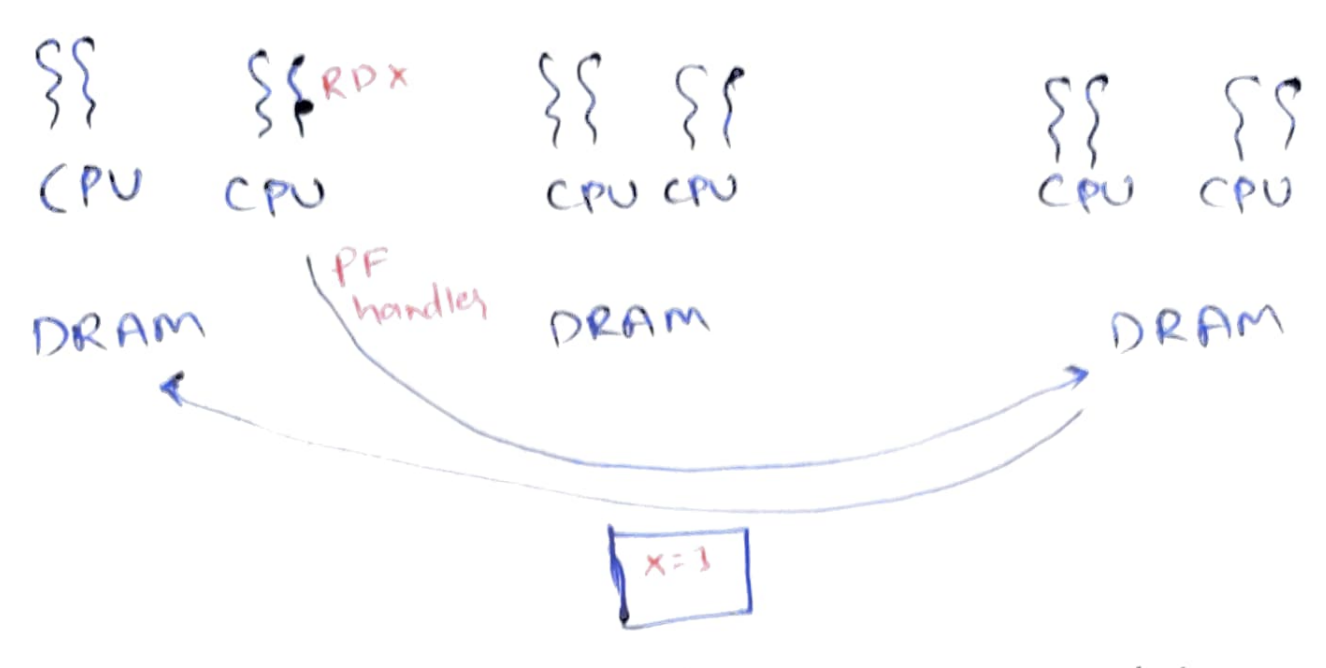 RDX
CPU CPU CPU CPU CPU CPU
PF
handler
DRAM DRAM DRAM
x=1